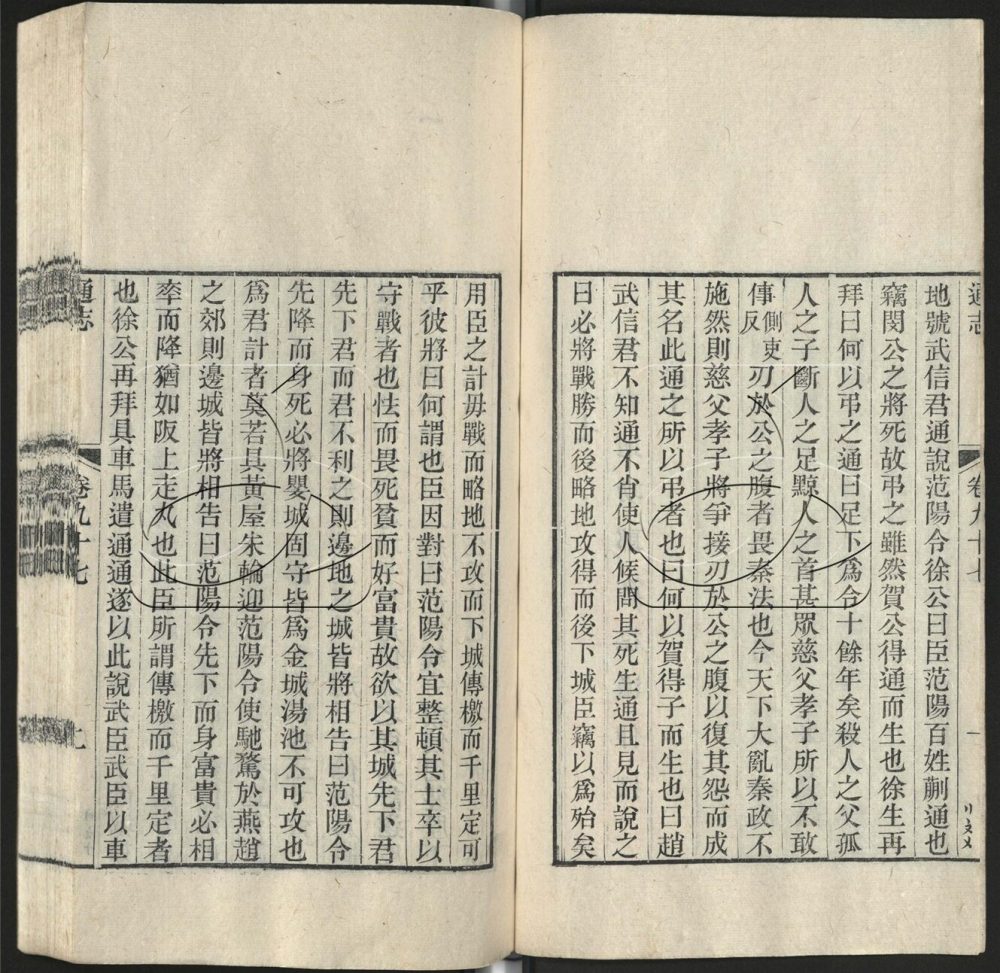 通志
卷九十七
地號武信君通說范陽令徐公曰臣范陽百姓蒯通也
竊閔公之將死故弔之雖然賀公得通而生也徐生再
拜曰何以弔之通曰足下爲令十餘年矣殺人之父孤
人之子斷人之足黥人之首甚眾慈父孝子所以不敢
倳側吏反刃於公之腹者畏秦法也今天下大亂秦政不
施然則慈父孝子將爭接刃於公之腹以復其怨而成
其名此通之所以弔者也曰何以賀得子而生也曰趙
武信君不知通不肖使人候問其死生通且見而說之
曰必將戰勝而後略地攻得而後下城臣竊以爲殆矣
用臣之計毋戰而略地不攻而下城傳檄而千里定可
乎彼將曰何謂也臣因對曰范陽令宜整頓其士卒以
守戰者也怯而畏死貧而好富貴故欲以其城先下君
先下君而君不利之則邊地之城皆將相告曰范陽令
先降而身死必將嬰城固守皆爲金城湯池不可攻也
爲君計者莫若具黃屋朱輪迎范陽令使馳騖於燕趙
之郊則邊城皆將相告曰范陽令先下而身富貴必相
率而降猶如阪上走丸也此臣所謂傳檄而千里定者
也徐公再拜具車馬遣通通遂以此說武臣武臣以車
通志
卷九十七
七